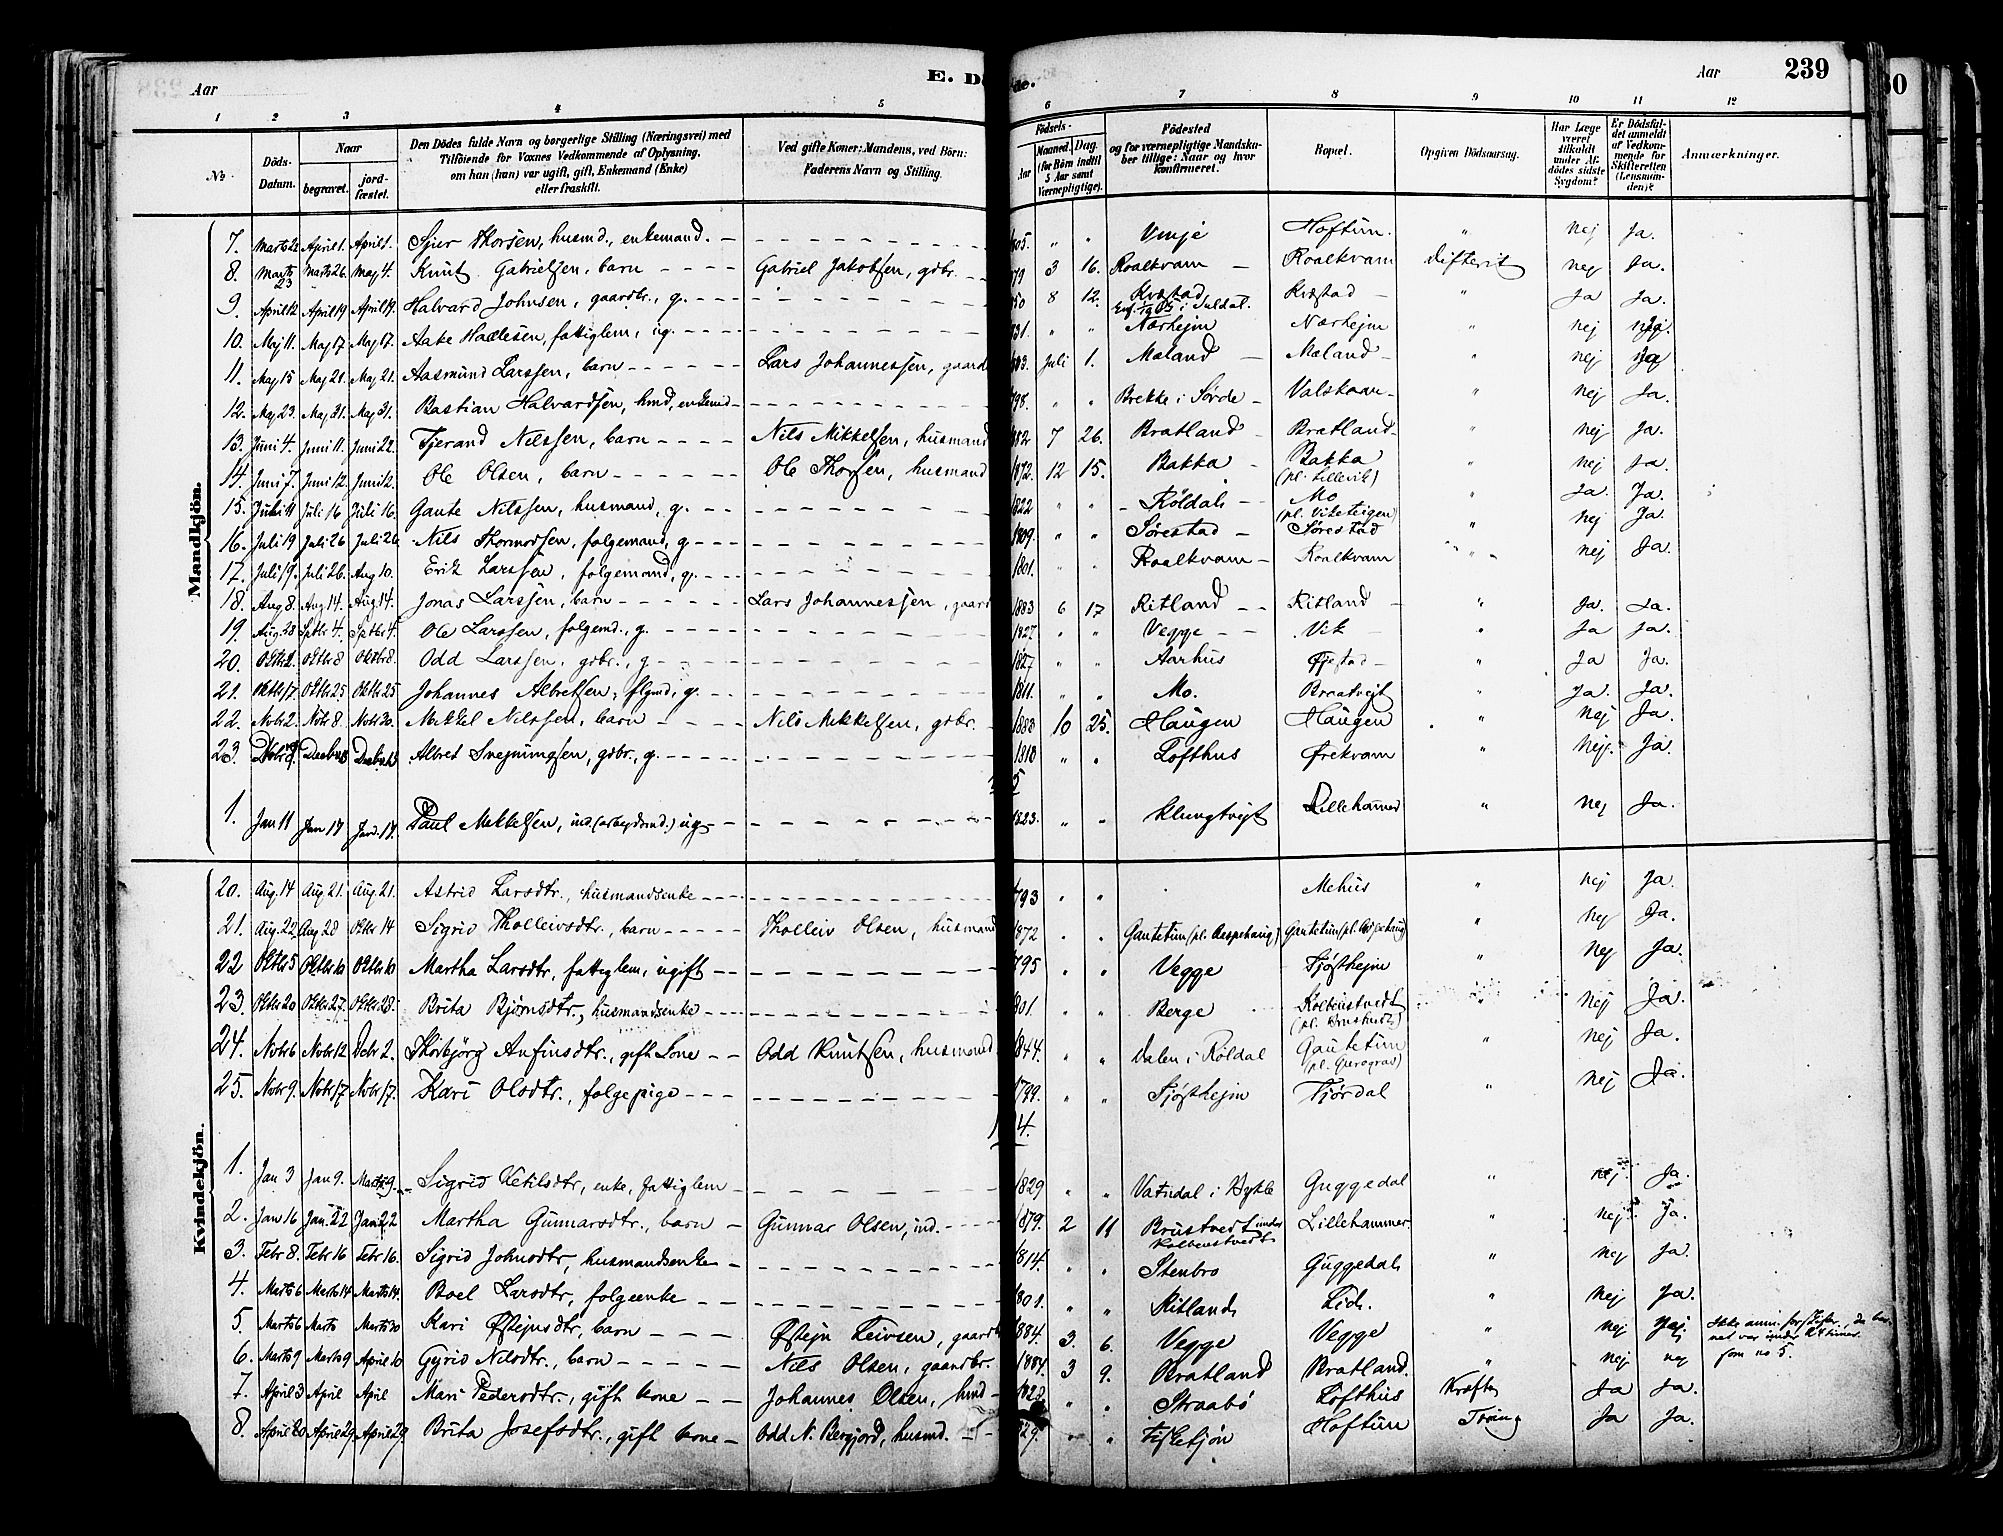 Aar
E. Dø
de.
Aar
239
1 2 3 4 5 6 7 8 9 10 11 12
No.
Döds-Datum.
Naar
begravet.
jordfæstet.
Den Dödes fulde Navn og borgerlige Stilling (Næringsvei) med
Tilföiende for Voxnes Vedkommende af Oplysning,
om han (hun) var ugift, gift, Enkemand (Enke)
eller fraskilt.
Ved gifte Koner: Mandens, ved Börn:
Faderens Navn og Stilling.
Födsels-
Aar
Maaned. Dag.
(for Börn indtil
5 Aar samt
Værnepligtige).
Födested
og for værnepligtige Mandska-
ber tillige: Naar og hvor
konfirmeret.
Bopæl.
Opgiven Dödsaarsag.
Har Læge
været
tilkaldt
under Af-
dödes sidste
Sygdom?
Er Dödsfal-
det anmeldt
af Vedkom-
mende for
Skifteretten
(Lensman-
den)?
Anmærkninger.
Mandkjön.
7. Marts 22 April 1. April 1. Sjur Thorsen, husmd., enkemand. 805. " " Vinje Hoftun. " nej Ja.
8. Marts 23 Marts 26. Maj 4. Knut Gabrielsen, barn Gabriel Jakobsen, gdbr. 79 3 16. Roalkvam Roalkvam Difterit nej Ja.
9. April 12 April 19 April 19. Halvard Johnsen, gaardbr., g. 50 8 12. Kvæstad i Suldal. Kvæstad " Ja Ja.
10. Maj 11. Maj 17 Maj 17. Aake Hadlesen, fattiglem, ug. 31. " " Nærhejm Nærhejm " nej
11. Maj 15 Maj 21. Maj 21. Aasmund Larssen, barn Lars Johannessen, gaard 883. Juli 1. Mæland Mæland " nej
12. Maj 23. Maj 31. Maj 31. Bastian Halvardsen, hmd, enkemd 798. " " Brekke i Sövde Valskaar " nej Ja.
13. Juni 4. Juni 11. Juni 22. Tjerand Nilssen, barn Nils Mikkelsen, husmand 882 7 26. Bratland Bratland " nej Ja.
14. Juni 7. Juni 12 Juni 12. Ole Olsen, barn Ole Thorsen, husmand 1872. 12 15. Bakka Bakka (pl. Lillevik) " nej Ja.
15. Juli 11 Juli 16 Juli 16. Gaute Nilssen, husmand, g. 1822 " " Röldal Mo (pl. Viketeigen) " Ja. Ja.
16. Juli 19 Juli 26 Juli 26. Nils Thormodsen, folgemand, g 1809. " " Sørestad Sørestad " nej Ja.
17. Juli 19. Juli 26. Aug 10. Erik Larssen, folgemand, g. 1801. " " Roalkvam Roalkvam " nej Ja.
18. Aug 8. Aug 14. Aug 14. Jonas Larssen, barn Lars Johannessen, gaard 1883 6 17 Ritland Ritland " Ja. Ja.
19. Aug. 28 Septbr 4. Septbr 4. Ole Larssen, folgemd., g. 1827 " " Vegge Vik " Ja Ja.
20. Oktbr 2. Oktbr 8 Oktbr 8. Odd Larssen, gdbr., g 1827 " " Aarhus Fjestad " Ja Ja.
21. Oktbr 17 Oktbr 25 Oktbr 25 Johannes Albretsen, flgmd, g. 1811. " " Mo. Braatvejt " Ja. Ja.
22. Novbr 2. Novbr 8 Novbr 30. Mikkel Nilssen, barn Nils Mikkelsen, gdbr. 1880 10 25. Haugen Haugen " nej Ja.
23. Albret Svejnungsen, gdbr., g. 1818 " " Lofthus Ørekvam " nej. Ja
5
1. Jan 11 Jan 17 Jan. 17. Paul Mikkelsen, ind. (arbejdsmd.) ug 1823. " " Klungtvejt Lillehammer " nej Ja.
Kvindekjön.
20. Aug. 14 Aug. 21. Aug. 21. Astrid Larsdtr., husmandsenke 793 " " Mehus " nej Ja.
21. Aug. 22 Aug 28 Oktbr 14 Sigrid Tholleivsdtr., barn Tholleiv Olsen, husmand 1872 " " Gautetun (pl. Aaspehaug) Gautetun (pl. Aaspehaug) " nej Ja.
22 Oktbr 5 Oktbr 10 Oktbr 10 Martha Larsdtr, fattiglem, ugift 795 " " Vegge Tjøsthejm " nej Ja.
23. Oktbr 20 Oktbr 27. Oktbr 28. Brita Bjørnsdtr., husmandsenke 801. " " Berge Kolbenstvedt (pl. Brustvedt) " nej Ja.
24. Novbr 6 Novbr 12 Debr 2. Thorbjörg Anfinsdtr., gift kone Odd Knutsen, husmand 844. " " Dalen i Röldal Gautetun (pl. ) " nej Ja.
25. Novbr 9. Novbr 17 Novbr 17. Kari Olsdtr., folgepige 1799. " " Tjøsthejm Fjørdal " nej Ja.
14.
1. Jan 3 Jan 9. Marts 9. Sigrid Ketilsdtr, enke, fattiglem 1829 " " Vatndal i Bykle Guggedal " nej. Ja.
2. Jan 16 Jan. 22 Jan 22 Martha Gunnarsdtr., barn Gunnar Olsen, ind. 1879. 2 11 Brustvedt under Kolbenstvedt Lillehammer. " nej Ja.
3. Febr 8. Febr 16 Febr 16. Sigrid Johnsdtr, husmandsenke 1814. " " Stenbro Guggedal " nej Ja.
4. Marts 6 Marts 14 Marts 14. Boel Larsdtr, folgeenke 801. " " Ritland Lid. " nej Ja.
5. Marts 6 Marts Marts 30 Kari Østejnsdtr, barn Østejn Leivsen, gaardb 1884. 3. 6. Vegge Vegge " nej Ikke anm. for Skifter., da barnet var under 24 timer.
6. Marts 9 Marts 9 April 10 Gyrid Nilsdtr., barn Nils Olsen, gaardbr. 1884. 3 9. Bratland Bratland. " nej nej som no 5.
7. April 3 April April Mari Pedersdtr., gift kone Johannes Olsen, hmd 1828 " " Straabö Lofthus Kræft Ja Ja.
8. April 20 April 29 April 29 Brita Josefsdtr., gift kone Odd N. Bergjord, husmd. 29. " " Fisketjön Hoftun Tæring Ja Ja.